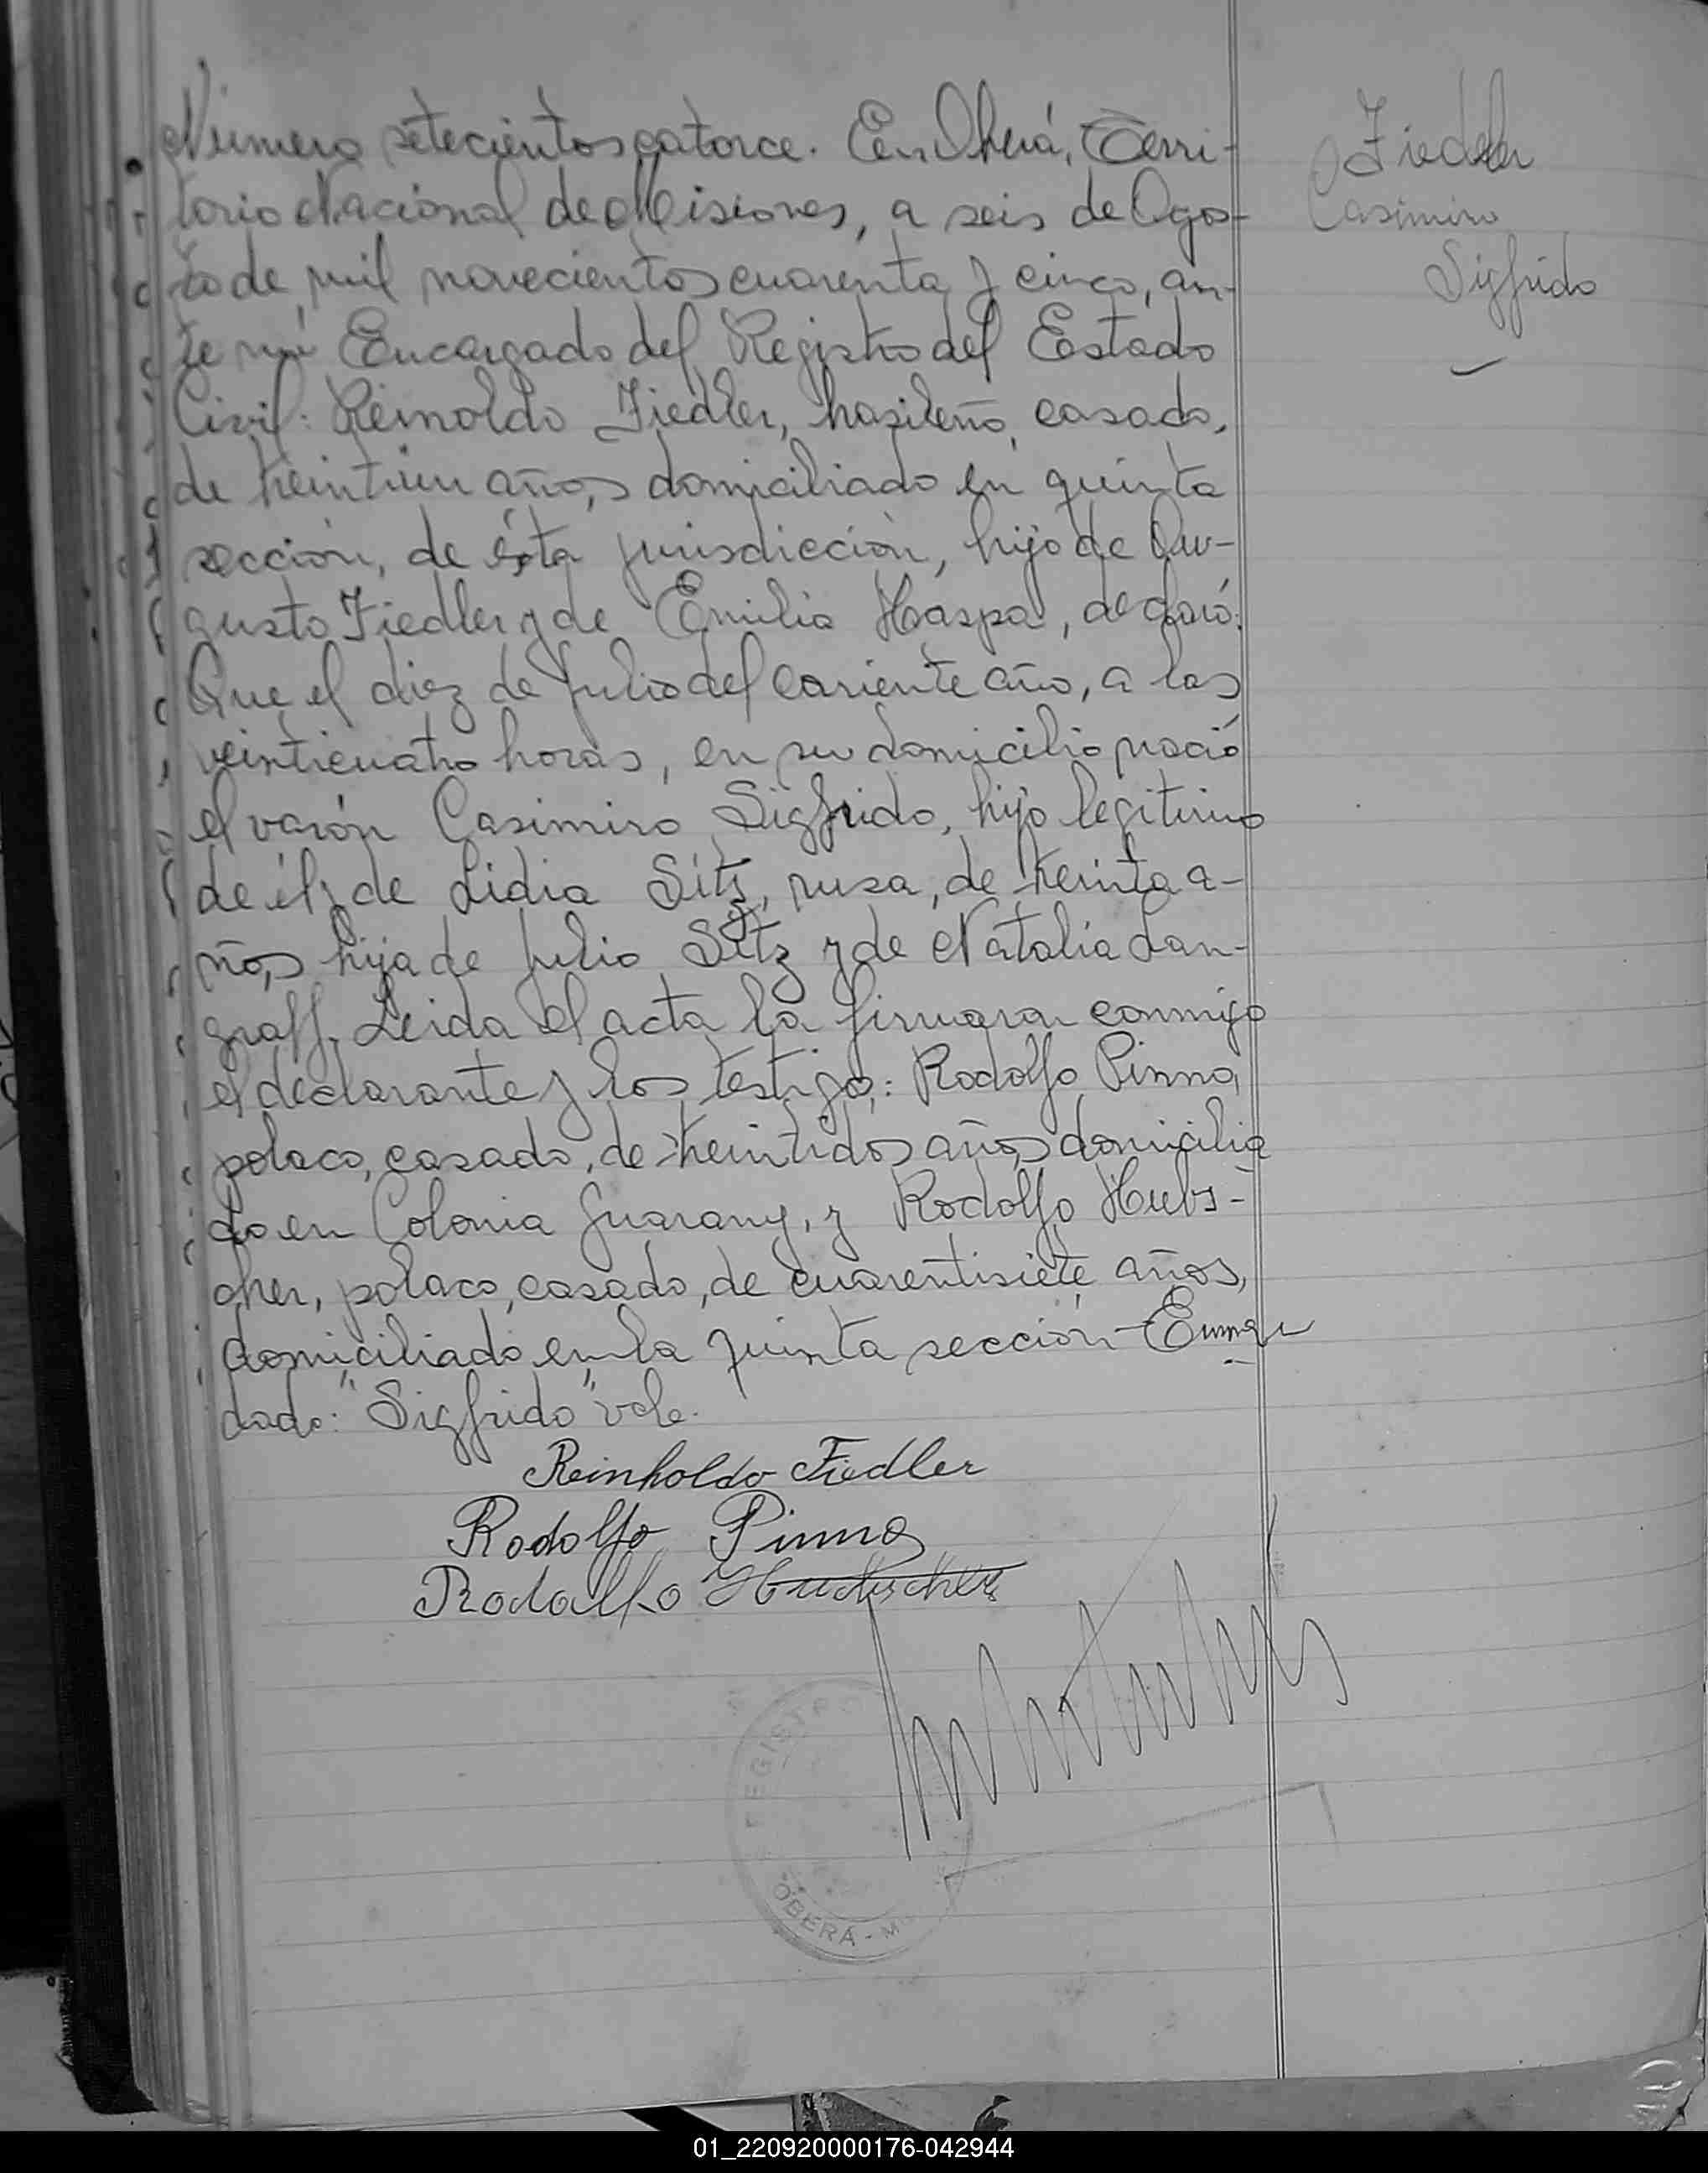 Número setecientos catorce. En Oberá, Terri-
torio Nacional de Misiones, a seis de Agos-
to de mil novecientos cuarenta y cinco, an-
te mí Encargado del Registro del Estado
Civil: Reinoldo Fiedler, brasileño, casado,
de treintiun años, domiciliado en quinta
sección, de ésta jurisdicción, hijo de Au-
gusto Fiedler y de Emilia Haspa, declaró:
Que el diez de Julio del coriente año, a las
veinticuatro horas, en su domicilio nació
el varón Casimiro Sigfrido, hijo legitimo
de él y de Lidia Sitz, rusa, de treinta a-
ños, hija de Julio Sitz y de Natalia Lan-
graff. Leida el acta la firmaron conmigo
el declarante y los testigos: Rodolfo Pinno,
polaco, casado, de treintidos años domicilia
do en Colonia Guarany, y Rodolfo Hubs-
cher, polaco, casado, de cuarentisiete años,
domiciliado en la quinta sección - Enmen
dado: "Sigfrido" vale.
Reinholdo Fiedler
Rodolfo Pinno
Rodolfo
REGISTR
OBERÁ - M
Fiedler
Casimiro
Sigfrido
01_220920000176-042944